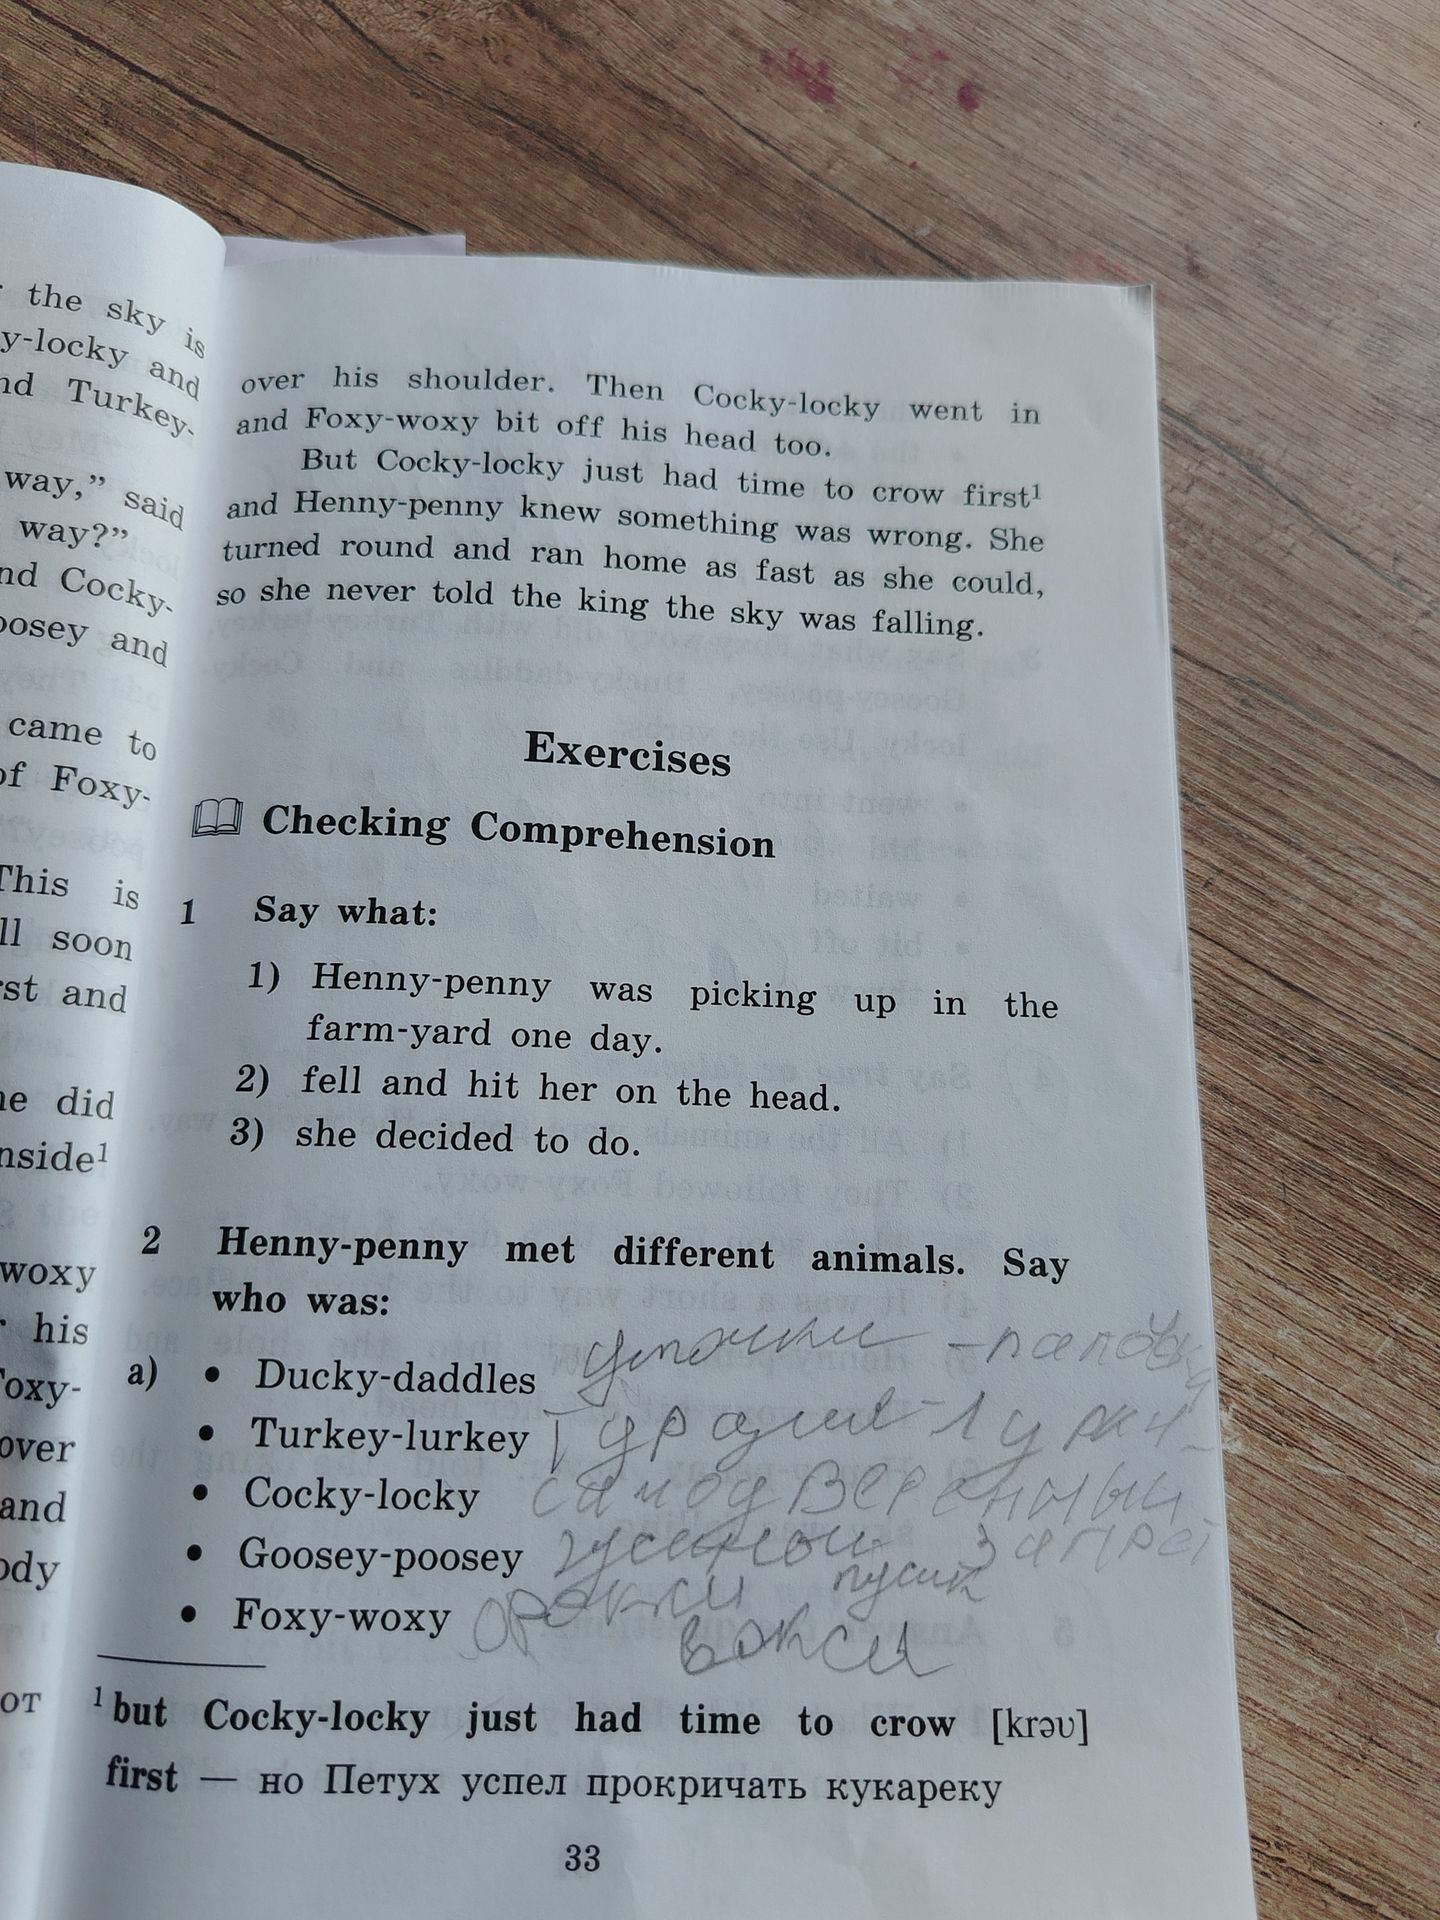 the sky is
y-locky and
nd Turkey-
way,” said
way?”
nd Cocky-
oosey and
came to
of Foxy-
This is
ll soon
rst and
he did
nside¹
woxy
his
Foxy-
over
and
ody
от
over his shoulder. Then Cocky-locky went in
and Foxy-woxy bit off his head too.
But Cocky-locky just had time to crow first¹
and Henny-penny knew something was wrong. She
turned round and ran home as fast as she could,
so she never told the king the sky was falling.
Exercises
Checking Comprehension
1 Say what:
1) Henny-penny was picking up in the
farm-yard one day.
2) fell and hit her on the head.
3) she decided to do.
2 Henny-penny met different animals. Say
who was:
a) • Ducky-daddles
• Turkey-lurkey
• Cocky-locky
• Goosey-poosey пусик
• Foxy-woxy вокси
¹ but Cocky-locky just had time to crow [krəʊ]
first — но Петух успел прокричать кукареку
33